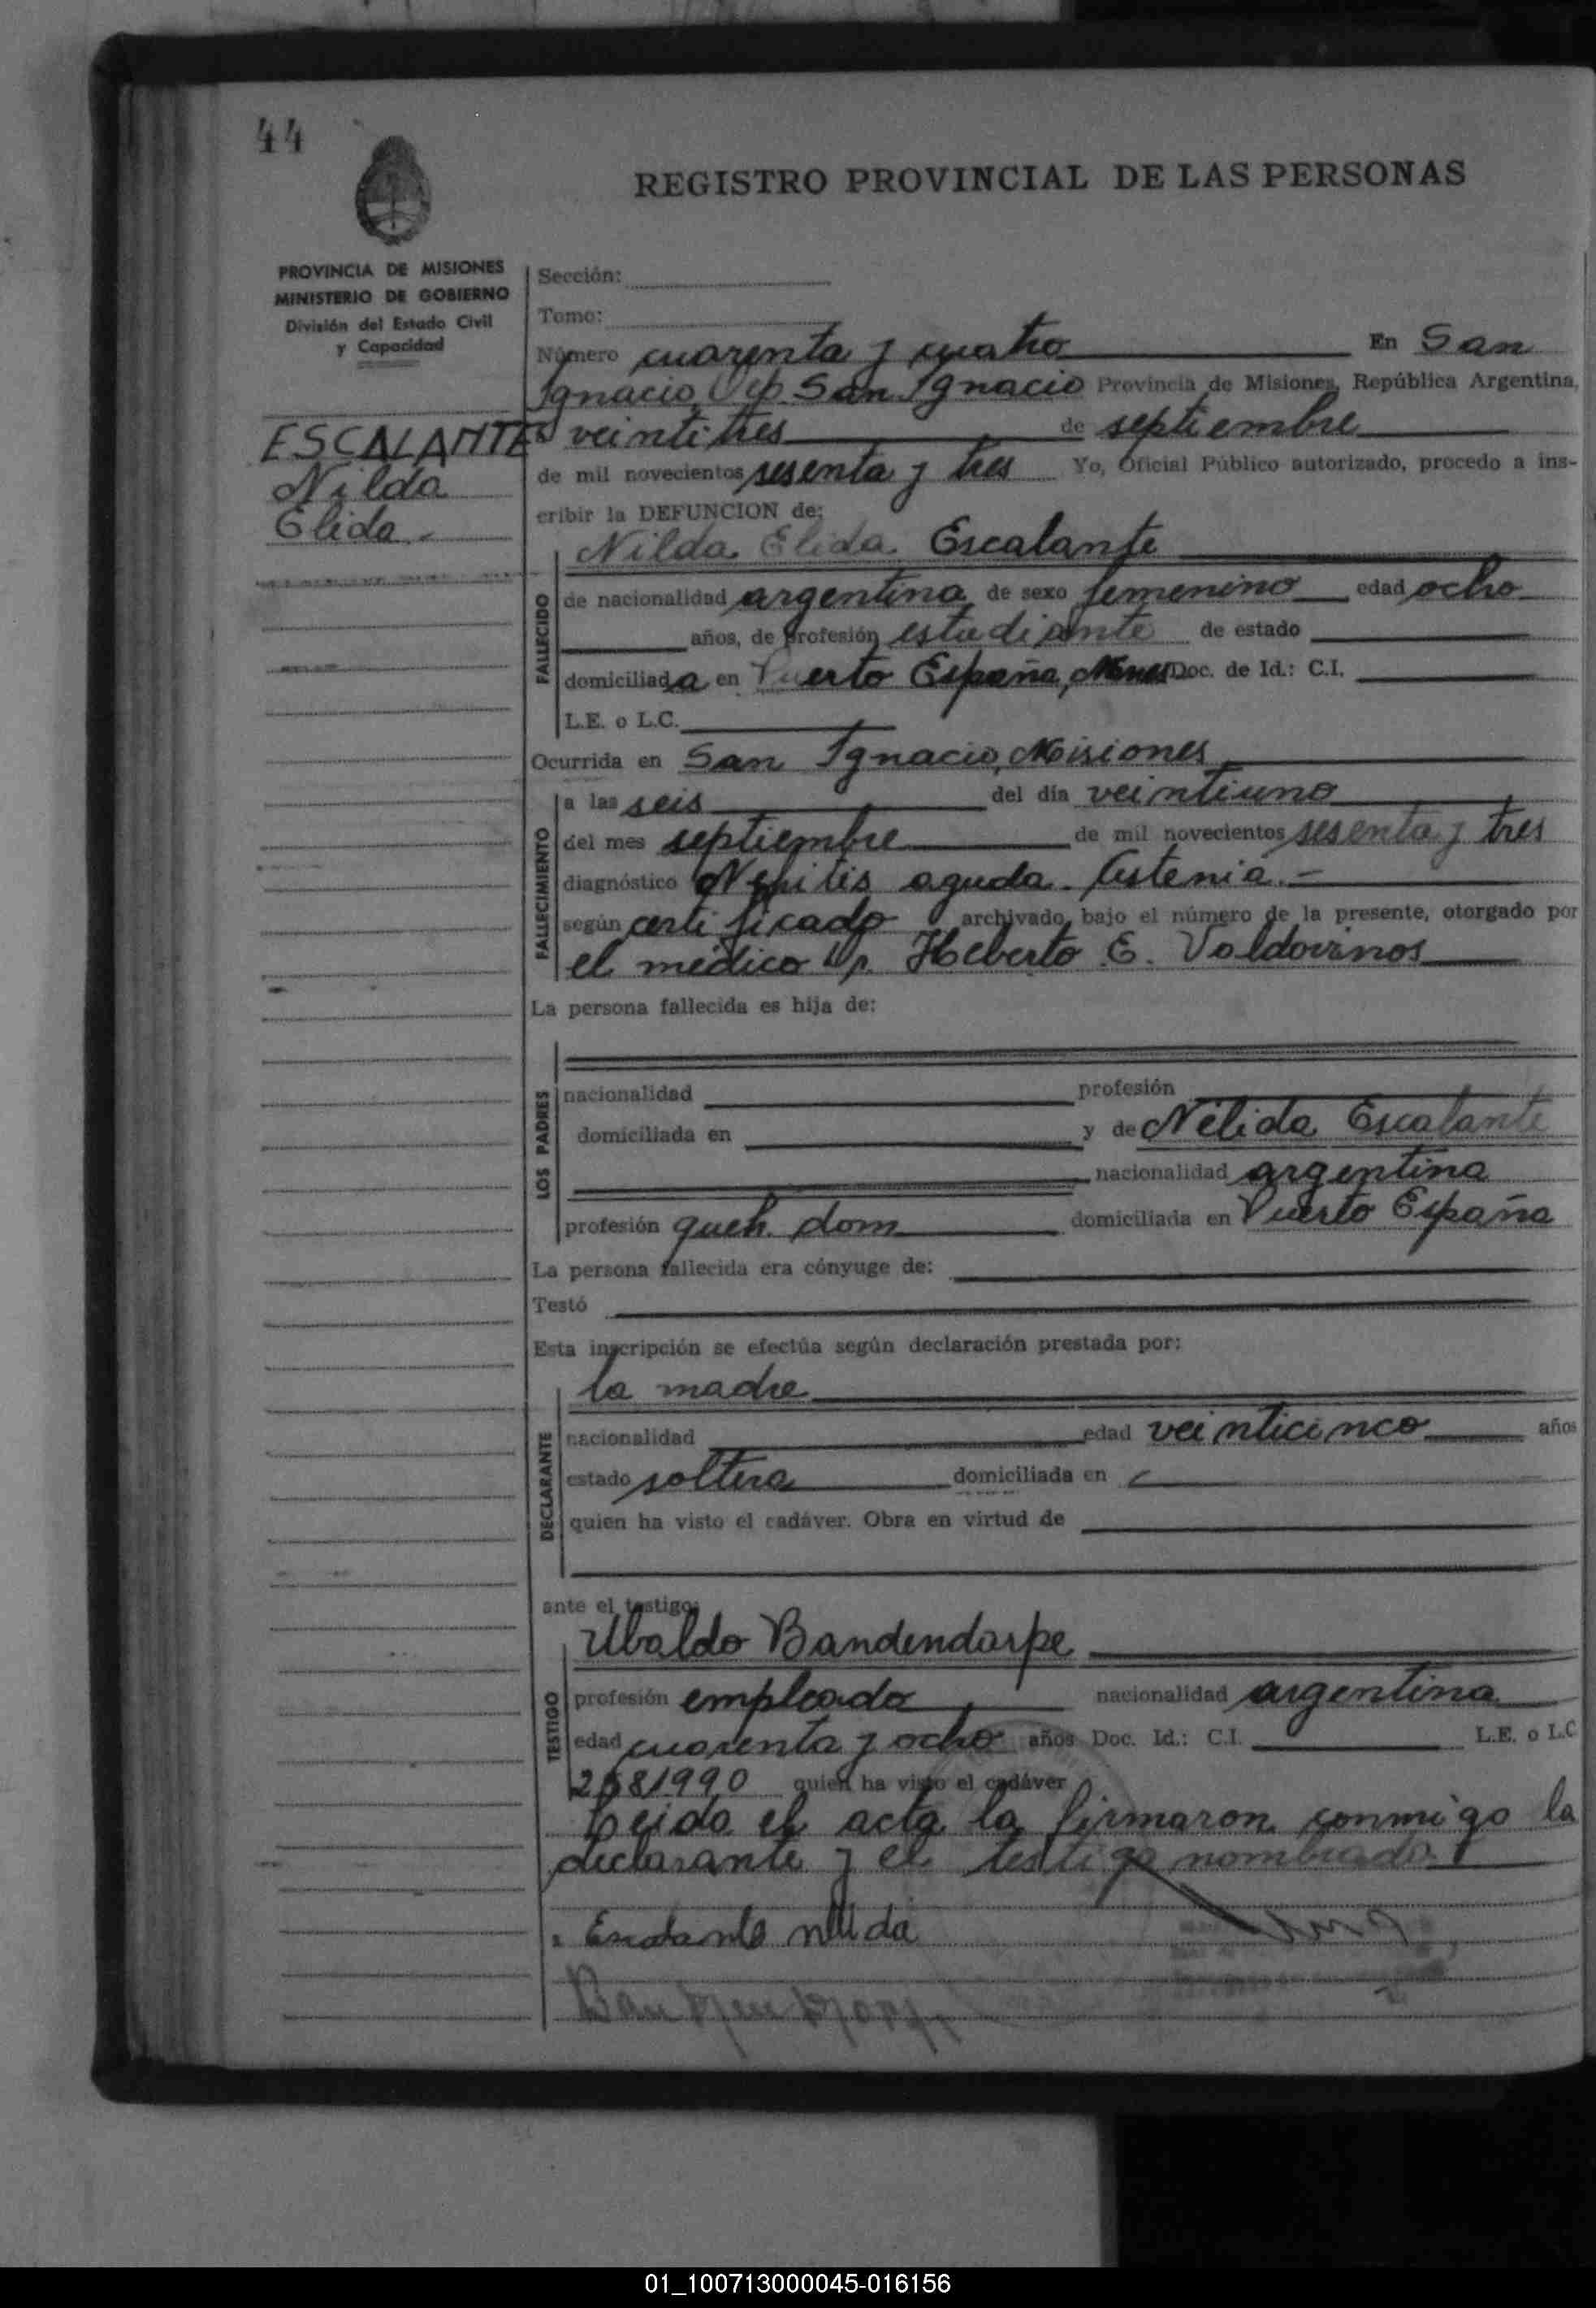 44
REGISTRO PROVINCIAL DE LAS PERSONAS
PROVINCIA DE MISIONES
MINISTERIO DE GOBIERNO
División del Estado Civil
y Capacidad
Sección:
Tomo:
Número cuarenta y cuatro En San
Ignacio, Dep. San Ignacio Provincia de Misiones, República Argentina,
ESCALANTE
Nilda
Elida.-
a veintitres de septiembre
de mil novecientos sesenta y tres Yo, Oficial Público autorizado, procedo a ins-
cribir la DEFUNCION de:
Nilda Elida Escalante
FALLECIDO
de nacionalidad argentina de sexo femenino edad ocho
años, de profesión estudiante de estado
domiciliada en Puerto España, Doc. de Id.: C.I.
L.E. o L.C.
Ocurrida en San Ignacio, Misiones
FALLECIMIENTO
a las seis del día veintiuno
del mes septiembre de mil novecientos sesenta y tres
diagnóstico aguda. Astenia.-
según certificado archivado, bajo el número de la presente, otorgado por
el médico Dr. Heberto E. Valdovinos
La persona fallecida es hija de:
LOS PADRES
nacionalidad profesión
domiciliada en y de Nélida Escalante
nacionalidad argentina
profesión queh. dom domiciliada en Puerto España
La persona fallecida era cónyuge de:
Testó
Esta inscripción se efectúa según declaración prestada por:
la madre
DECLARANTE
nacionalidad edad veinticinco años
estado soltera domiciliada en
quien ha visto el cadáver. Obra en virtud de
ante el testigo:
Ubaldo Bandendorpe
TESTIGO
profesión empleado nacionalidad argentina
edad cuarenta y ocho años Doc. Id.: C.I. L.E. o L.C
quien ha visto el cadáver
Leida el acta la firmaron conmigo la
declarante y el testigo nombrado.
Escalante nilida
01_100713000045-016156